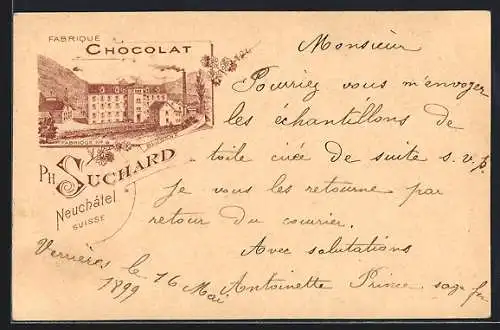 FABRIQUE
CHOCOLAT
FABRIQUE Nº
PH. SUCHARD
Neuchâtel
SUISSE
Monsieur
Pourriez vous m'envoyer
les échantillons de
toile cirée de suite s.v.p.
Je vous les retourne par
retour du courier.
Avec salutations
Verrières le 16 Mai Antoinette Prince sage
1899